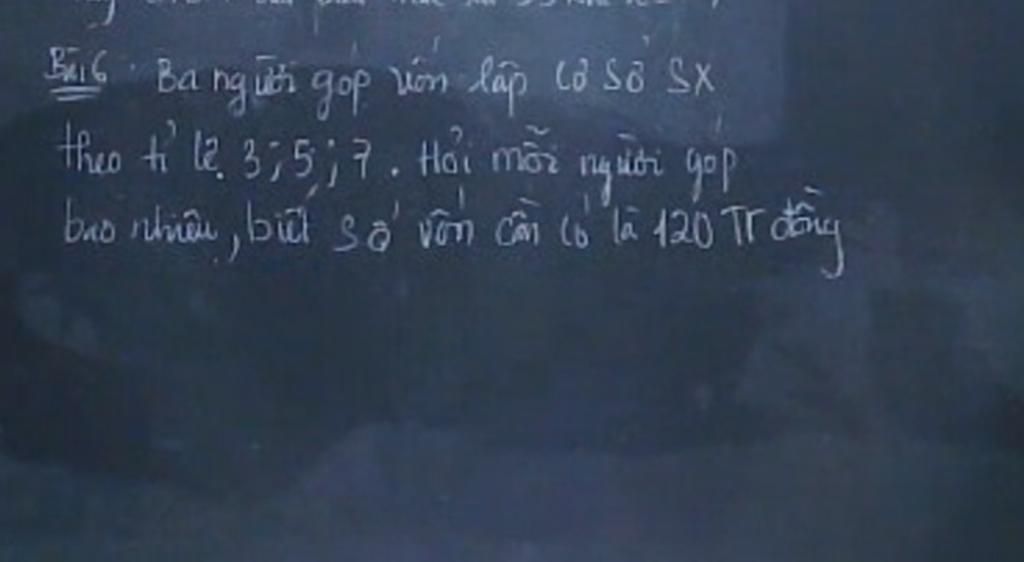 Bài 6. Ba người góp vốn lập cơ sở SX
theo tỉ lệ 3; 5; 7. Hỏi mỗi người góp
bao nhiêu, biết số vốn cần có là 120 Tr đồng